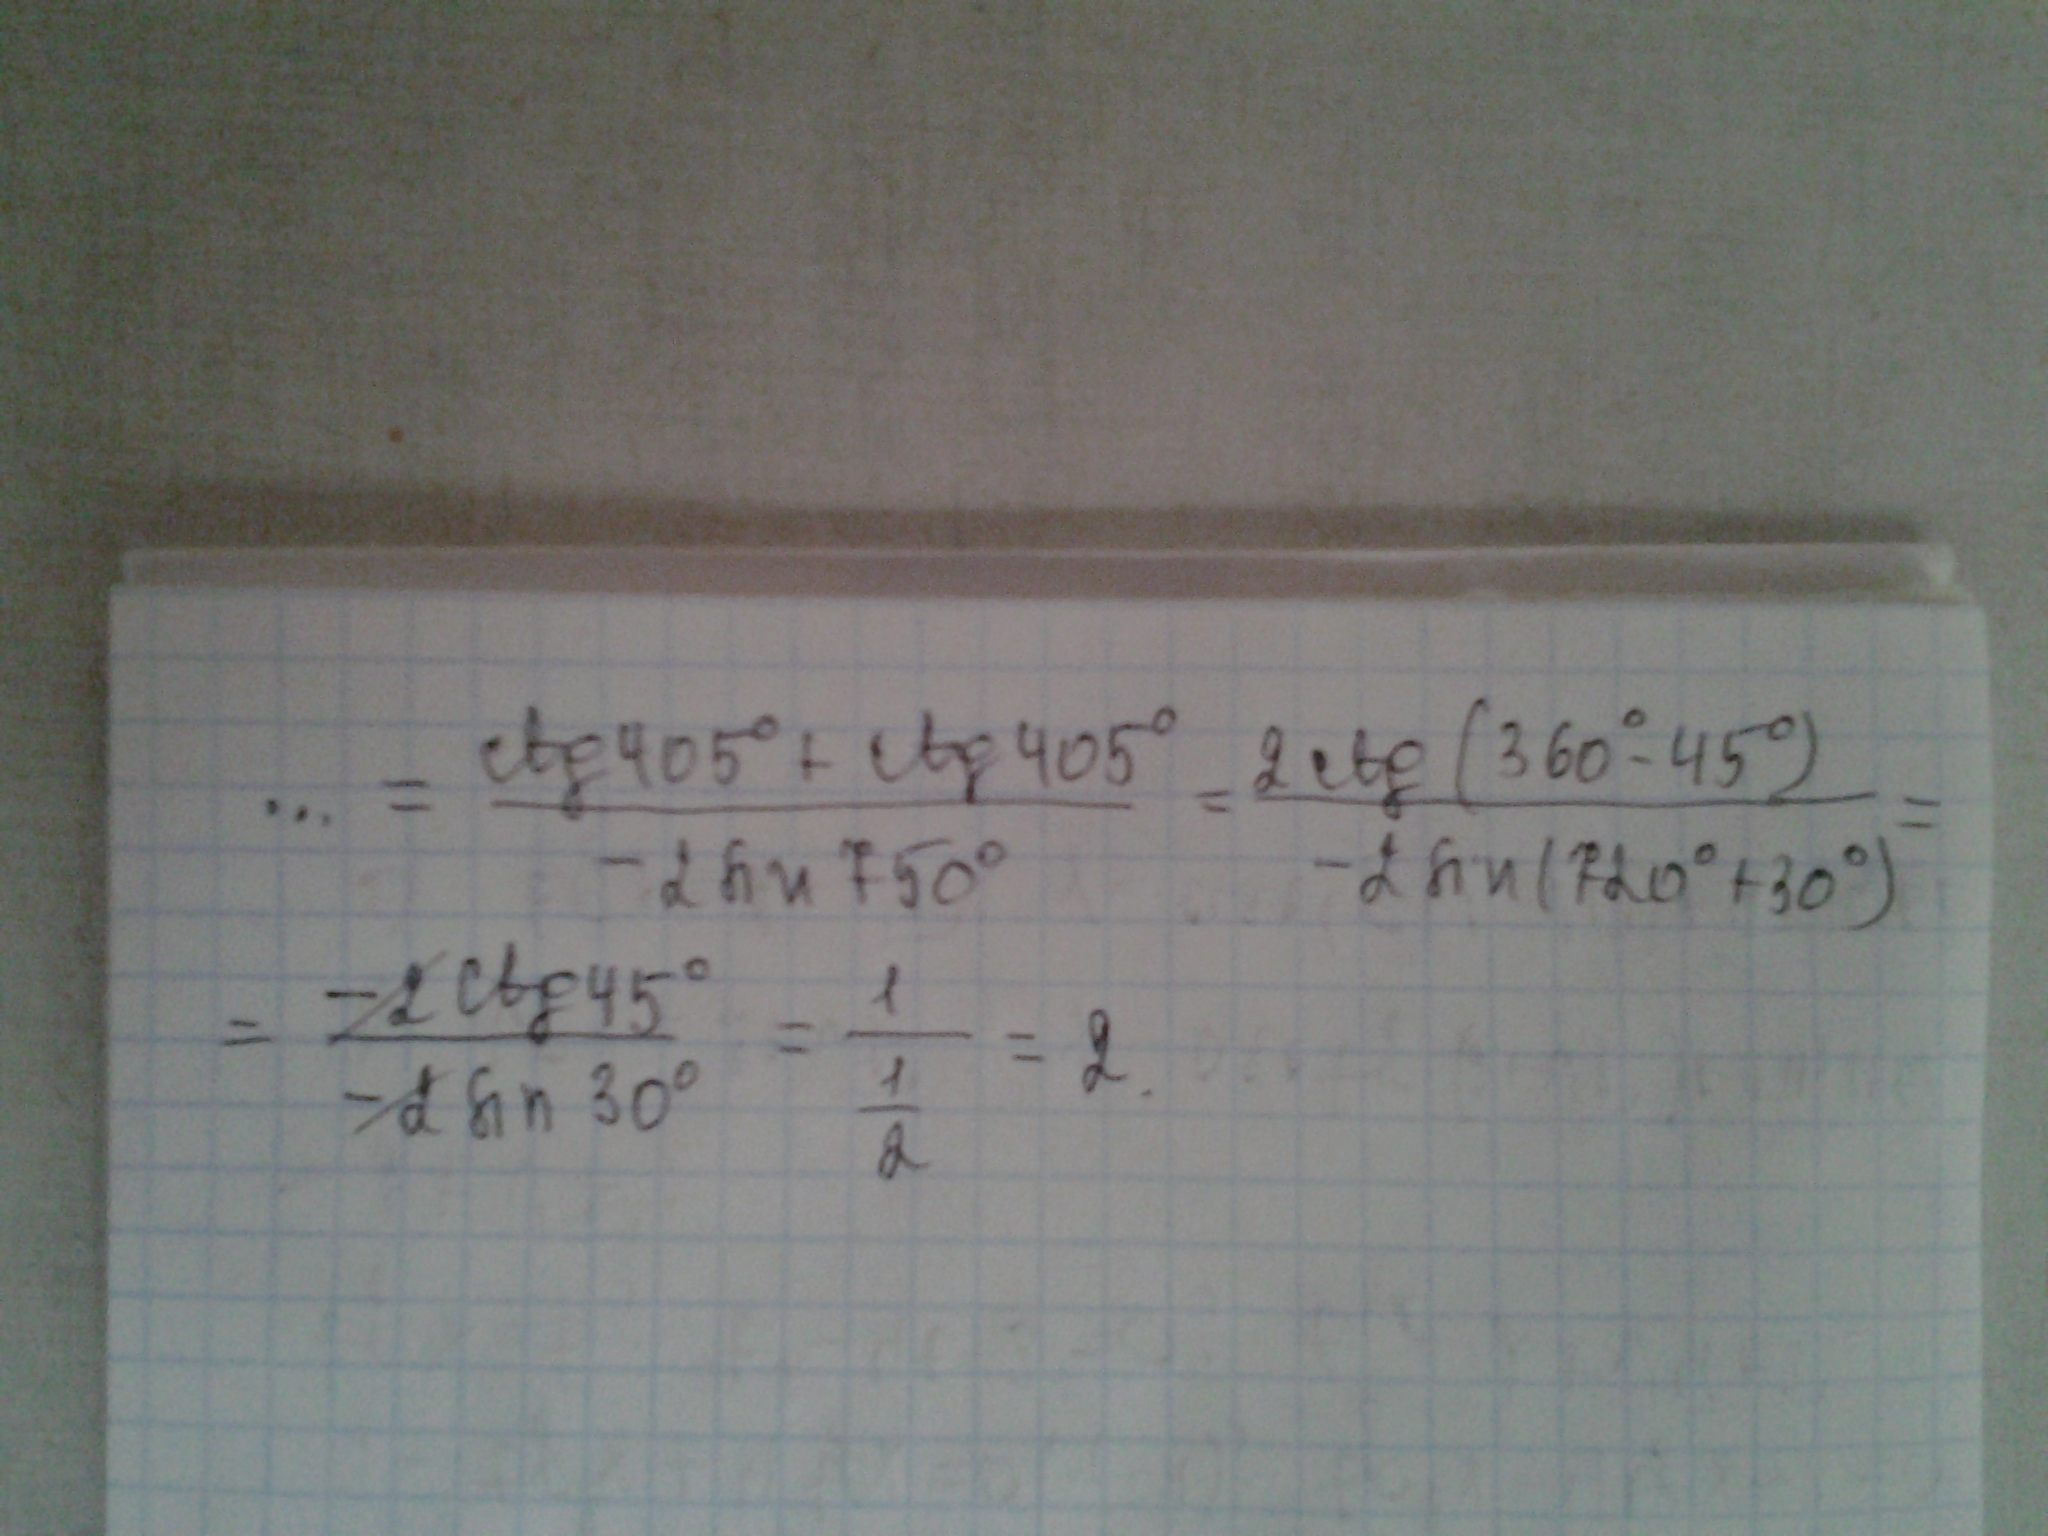 ... = (ctg 405° + ctg 405°) / (-2 sin 750°) = 2 ctg (360° - 45°) / (-2 sin (720° + 30°)) =
= (-2 ctg 45°) / (-2 sin 30°) = 1 / (1/2) = 2.